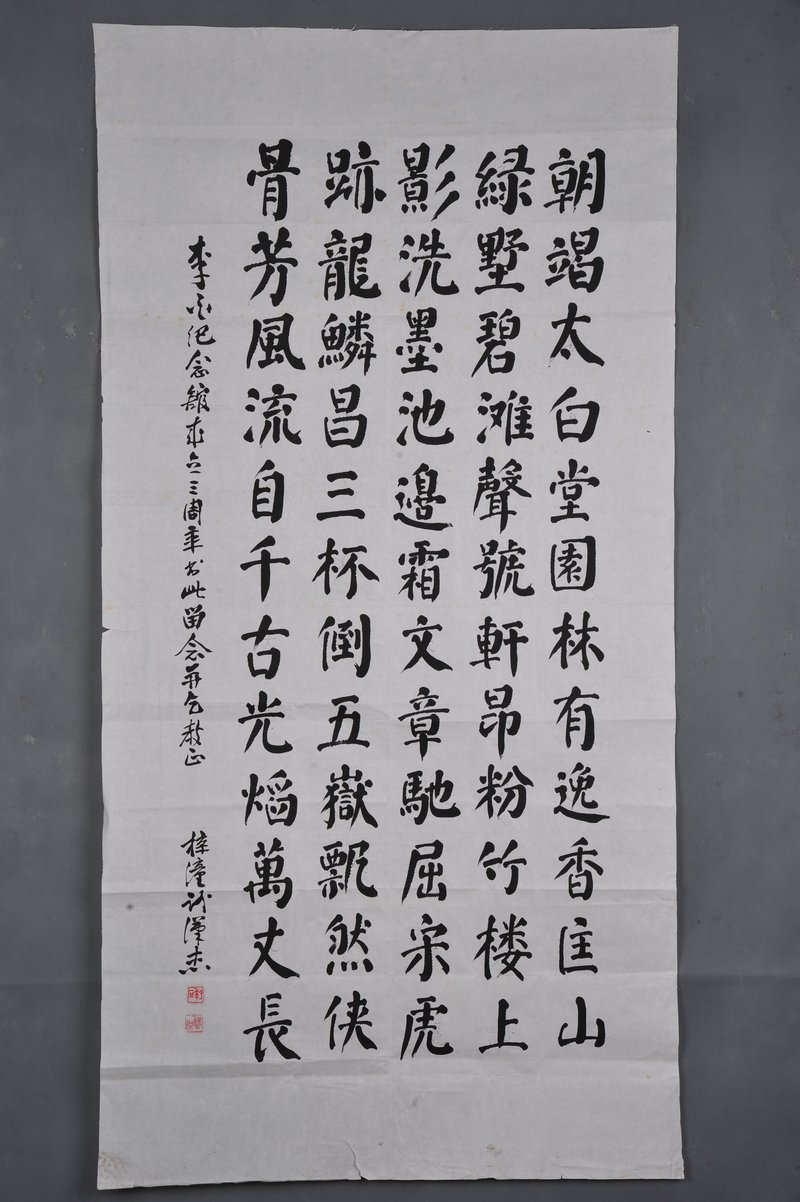 朝竭太白堂園林有逸香匡山
綠墅碧滩聲號軒昂粉竹楼上
影洗墨池邊霜文章馳屈宋虎
跡龍鱗昌三杯倒五嶽飘然俠
骨芳風流自千古光熖萬丈長
李白纪念館成立三周年书此留念并乞教正
梓潼 漢杰